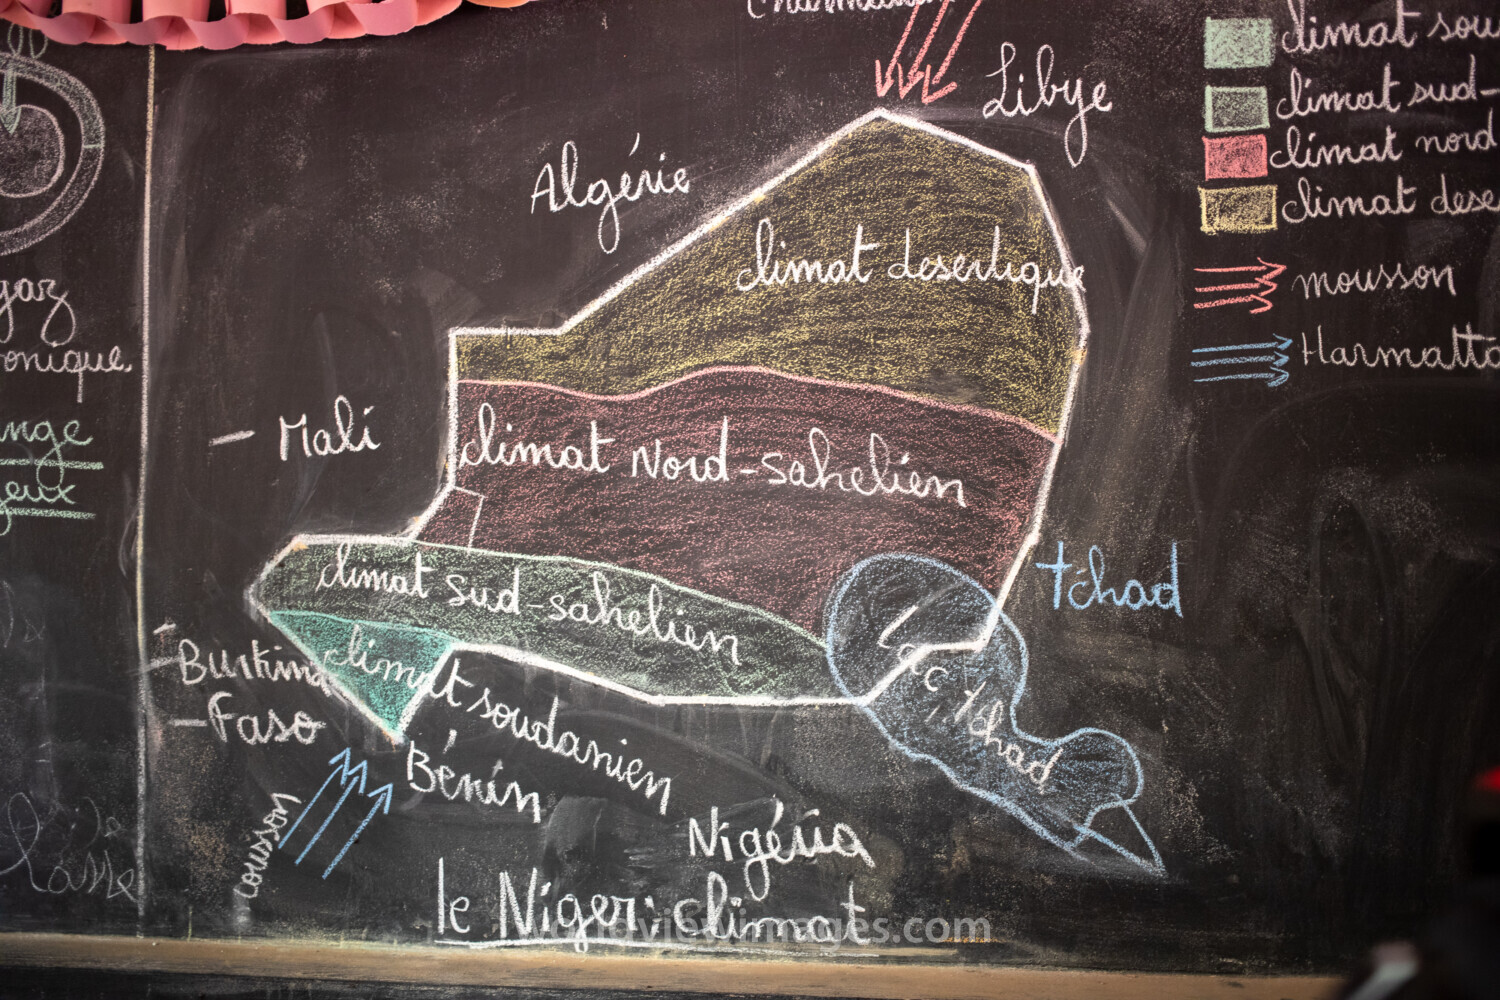 climat sou
climat sud-
climat nord
climat dese
mousson
Harmatta
Libye
Algérie
climat desertique
Mali
climat Nord-sahelien
climat sud-sahelien
climat soudanien
tchad
Lac tchad
Burkina
Faso
Bénin
Nigéria
le Niger: climat
gaz
onique
ange
jeux
worldviewimages.com